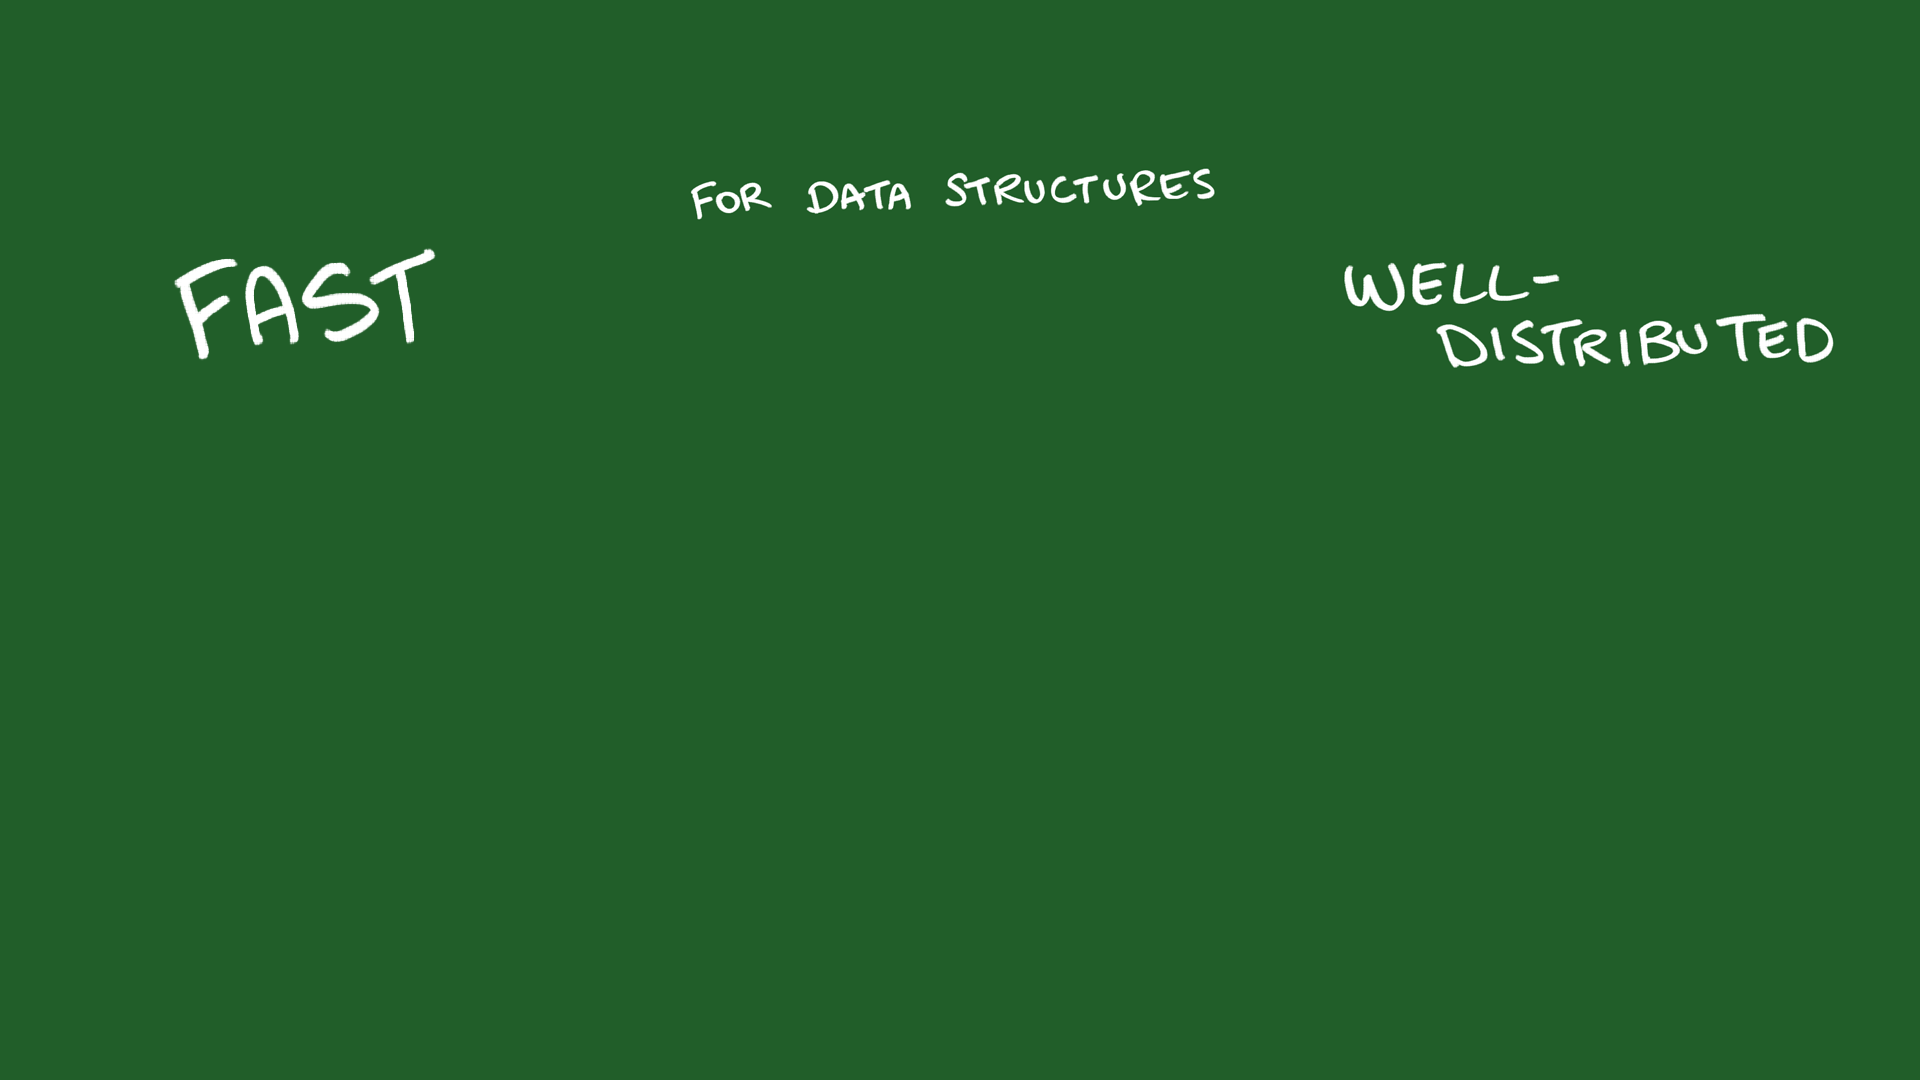 FOR DATA STRUCTURES
FAST
WELL-
DISTRIBUTED